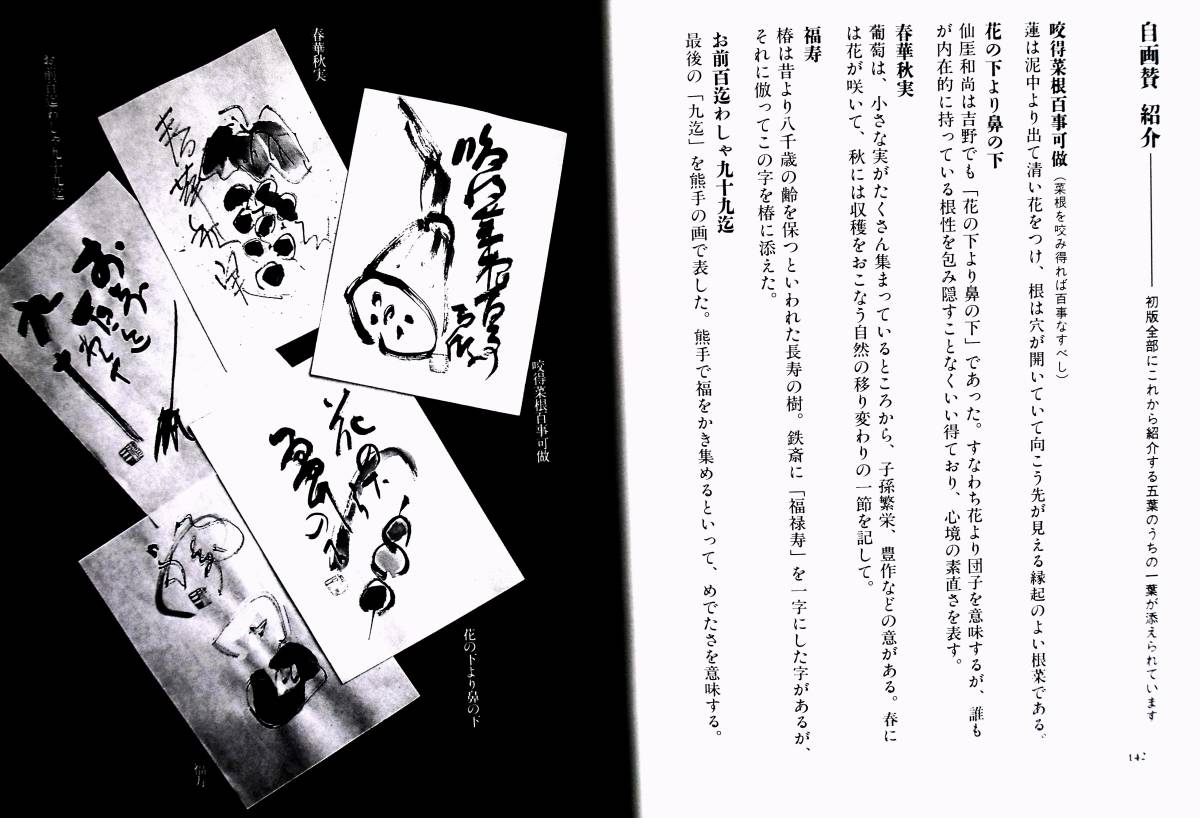 自画賛 紹介―――初版全部にこれから紹介する五葉のうちの一葉が添えられています
咬得菜根百事可做（菜根を咬み得れば百事なすべし）
蓮は泥中より出て清い花をつけ、根は穴が開いていて向こう先が見える縁起のよい根菜である。
花の下より鼻の下
仙厓和尚は吉野でも「花の下より鼻の下」であった。すなわち花より団子を意味するが、誰も
が内在的に持っている根性を包み隠すことなくいい得ており、心境の素直さを表す。
春華秋実
葡萄は、小さな実がたくさん集まっているところから、子孫繁栄、豊作などの意がある。春に
は花が咲いて、秋には収穫をおこなう自然の移り変わりの一節を記して。
福寿
椿は昔より八千歳の齢を保つといわれた長寿の樹。鉄斎に「福禄寿」を一字にした字があるが、
それに倣ってこの字を椿に添えた。
お前百迄わしゃ九十九迄
最後の「九迄」を熊手の画で表した。熊手で福をかき集めるといって、めでたさを意味する。
142
咬得菜根百事可做
花の下より鼻の下
春華秋実
お前百迄わしゃ九十九迄